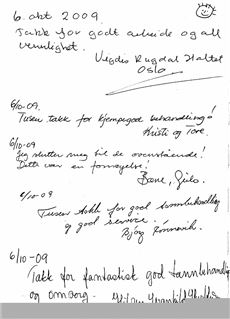 6. okt 2009.
Takk for godt arbeide og all
vennlighet.
Vigdis Rugdal
Oslo
6/10-09.
Tusen takk for kjempegod behandling!
Kristi og Tore.
6/10-09
Jeg slutter meg til de ovenstående!
Dette var en fornøyelse!
6/10-09.
Tusen takk for god tannbehandling
og god service.
Bjørg
6/10-09
Takk for fantastisk god tannbehandling
og omsorg.